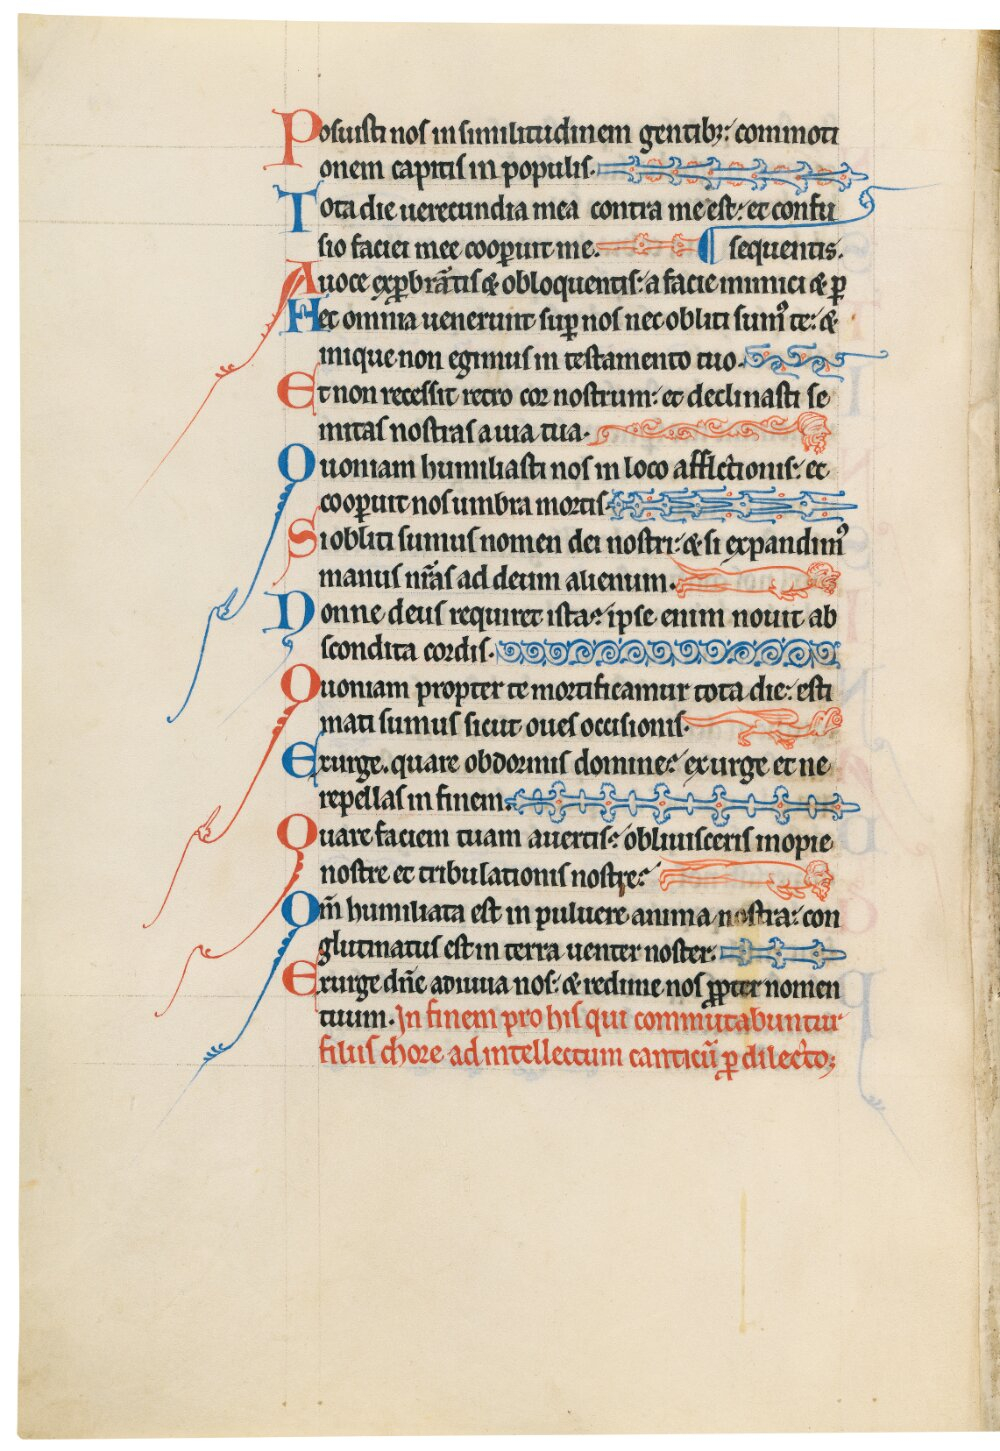 Posuisti nos in similitudinem gentib; : commoti
onem capitis in populis.
Tota die uerecundia mea contra me est : et confu
sio faciei mee cooꝑuit me. sequentis.
A uoce exꝓbrãtis & obloquentis : a facie inimici & ꝑ
Hec omnia uenerunt suꝑ nos nec obliti sumꝰ te : &
inique non egimus in testamento tuo.
Et non recessit retro cor nostrum : et declinasti se
mitas nostras a uia tua.
Quoniam humiliasti nos in loco afflictionis : et
cooꝑuit nos umbra mortis.
Si obliti sumus nomen dei nostri : & si expandimꝰ
manus nr̃as ad deum alienum.
Nonne deus requiret ista : ipse enim nouit ab
scondita cordis.
Quoniam propter te mortificamur tota die : esti
mati sumus sicut oues occisionis.
Exurge. quare obdormis domine : exurge et ne
repellas in finem.
Quare faciem tuam auertis : obliuisceris inopie
nostre et tribulationis nostre :
Qm̃ humiliata est in puluere anima nostra : con
glutinatus est in terra uenter noster.
Exurge dñe adiuua nos : & redime nos ꝓpter nomen
tuum. In finem pro his qui commutabuntur
filiis chore ad intellectum canticũ ꝑ dilecto;